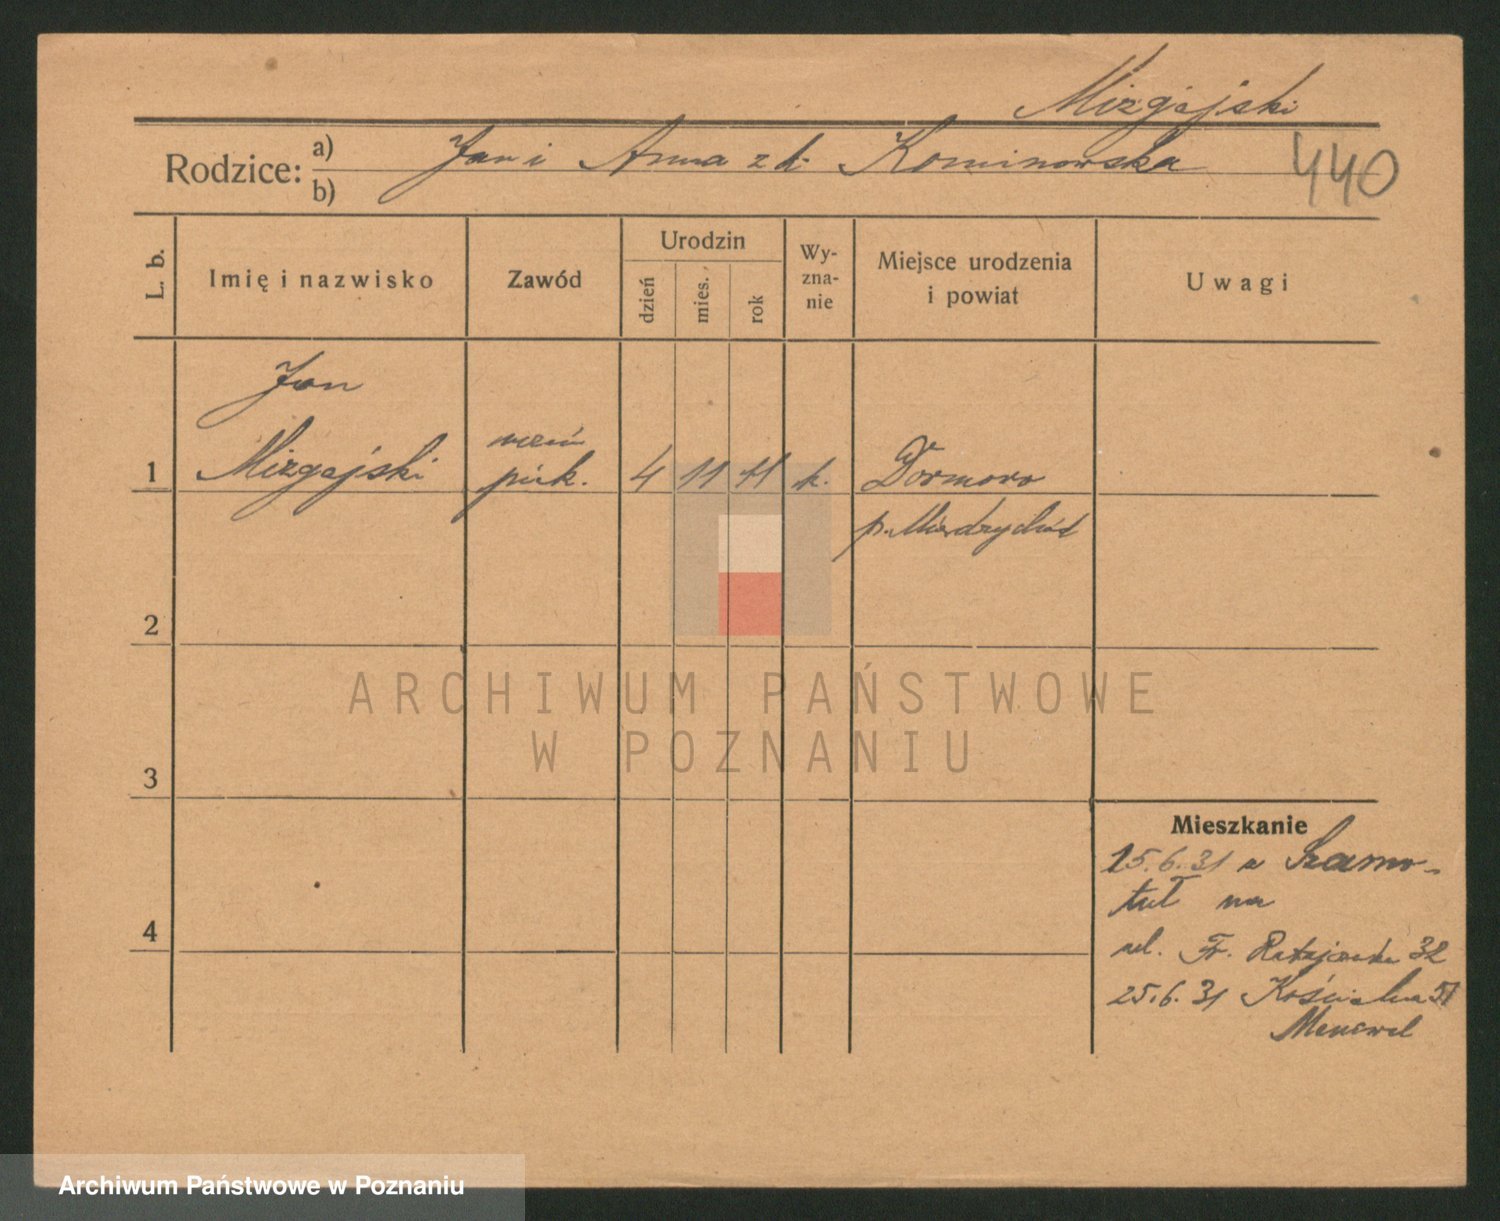 Mizgajski
Rodzice: a) Jan i Anna z d. Kominowska
b)
440
L. b.
Imię i nazwisko
Zawód
Urodzin
dzień
mies.
rok
Wy-
zna-
nie
Miejsce urodzenia
i powiat
Uwagi
Jan
1 Mizgajski
uczeń
piek.
4 11 11 k. Dormowo
p. Międzychód
2
ARCHIWUM PAŃSTWOWE
W POZNANIU
3
4
Mieszkanie
15.6.31 z Szamo-
tuł na
ul. Fr. Ratajczaka 32
25.6.31 Kościelna 51
Archiwum Państwowe w Poznaniu